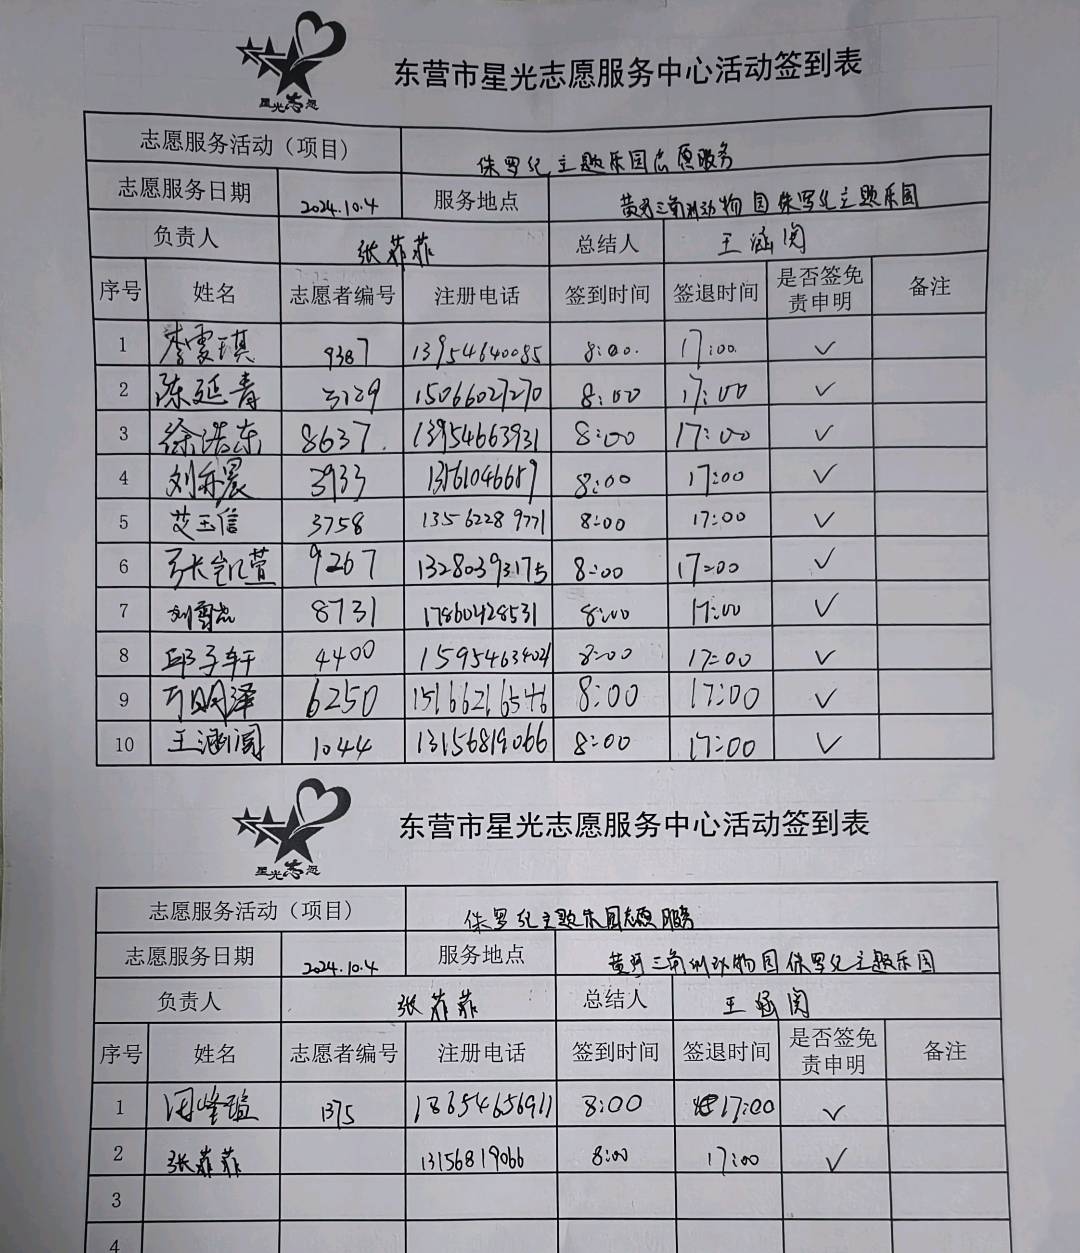 星光志愿
东营市星光志愿服务中心活动签到表
志愿服务活动（项目） 侏罗纪主题乐园志愿服务
志愿服务日期 2024.10.4 服务地点 黄河三角洲动物园侏罗纪主题乐园
负责人 张菲菲 总结人 王涵阅
序号 姓名 志愿者编号 注册电话 签到时间 签退时间 是否签免责申明 备注
1 李雯琪 9387 13954640085 8:00. 17:00. ✓
2 陈延青 3129 15066027270 8:00 17:00 ✓
3 徐浩东 8637. 13954663931 8:00 17:00 ✓
4 刘亦晨 3933 13761046659 8:00 17:00 ✓
5 艾玉信 3758 13562289771 8:00 17:00 ✓
6 张凯萱 9267 13280393175 8:00 17:00 ✓
7 8731 17860428531 8:00 17:00 ✓
8 邱子轩 4400 15954634021 8:00 17:00 ✓
9 明泽 6250 15166216546 8:00 17:00 ✓
10 王涵阅 1044 13156819066 8:00 17:00 ✓
星光志愿
东营市星光志愿服务中心活动签到表
志愿服务活动（项目） 侏罗纪主题乐园志愿服务
志愿服务日期 2024.10.4 服务地点 黄河三角洲动物园侏罗纪主题乐园
负责人 张菲菲 总结人 王涵阅
序号 姓名 志愿者编号 注册电话 签到时间 签退时间 是否签免责申明 备注
1 周峰蕴 1375 18654656911 8:00 17:00 ✓
2 张菲菲 13156819066 8:00 17:00 ✓
3
4